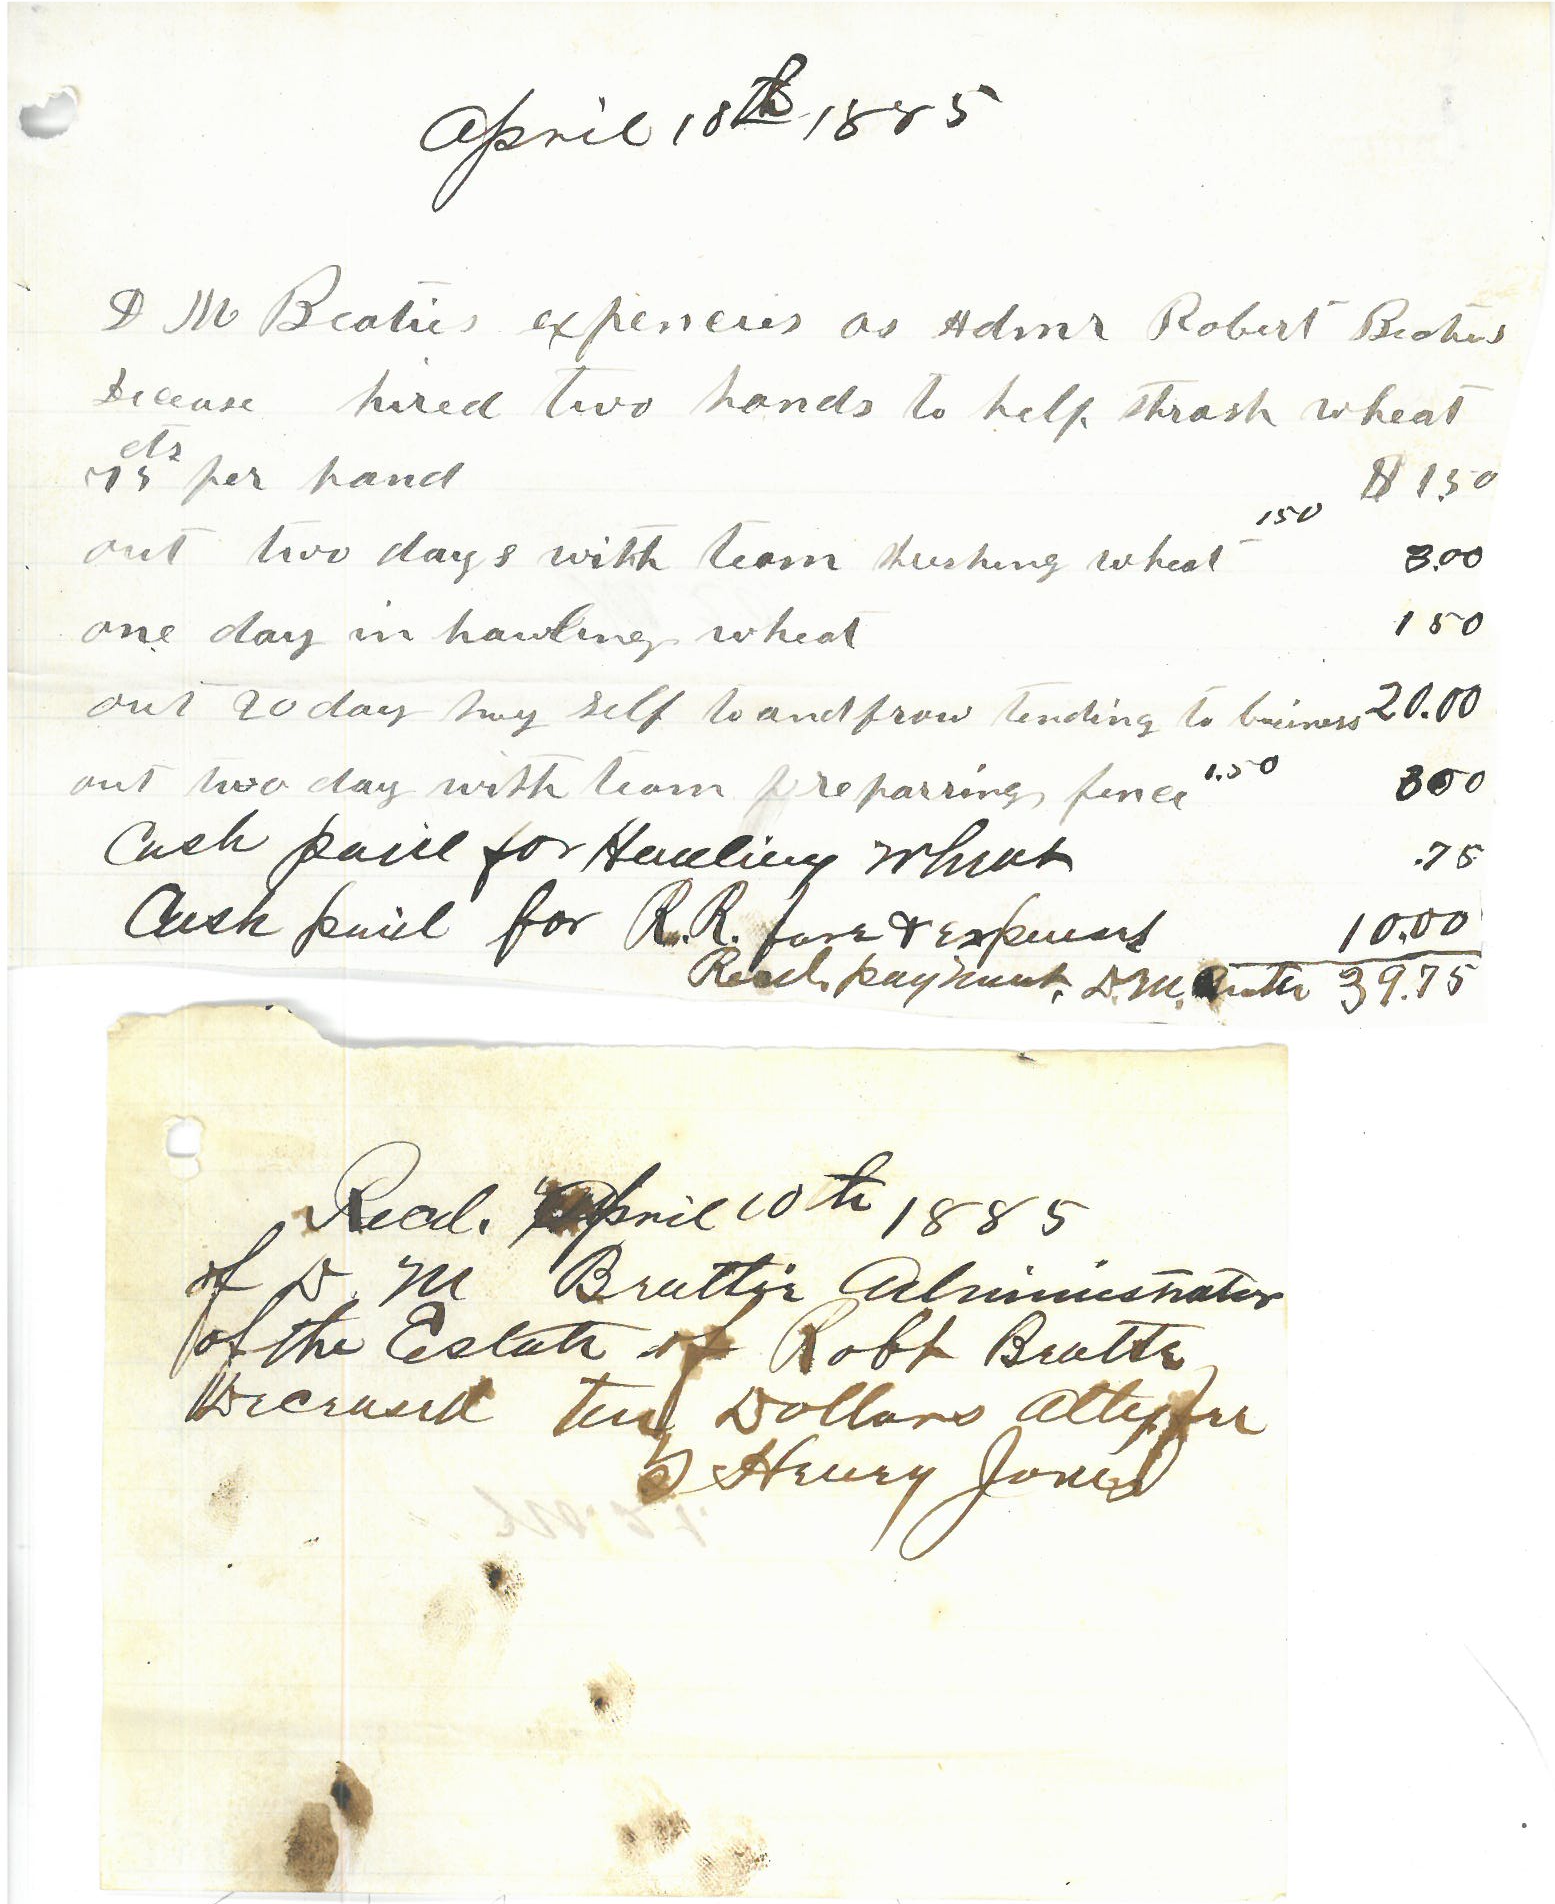 April 18th 1885
D M Beaties expenceies as Admr Robert Beaties
Decease hired two hands to help thrash wheat
75 cts per hand $ 1 50
out two days with team thrshing wheat 150 3.00
one day in hawling wheat 1 50
out 20 day my self to and frow tending to buiness 20.00
out two day with team repairring fence 1.50 3 00
Cash paid for Hauling Wheat .75
Cash paid for R.R. fare & expenses 10.00
Recd. payment. D.M. Beatie 39.75
Recd. April 10th 1885
of D. M Beattie Administrator
of the Estate of Robt Beattie
Deceased ten Dollars Atty fee
Henry Jones